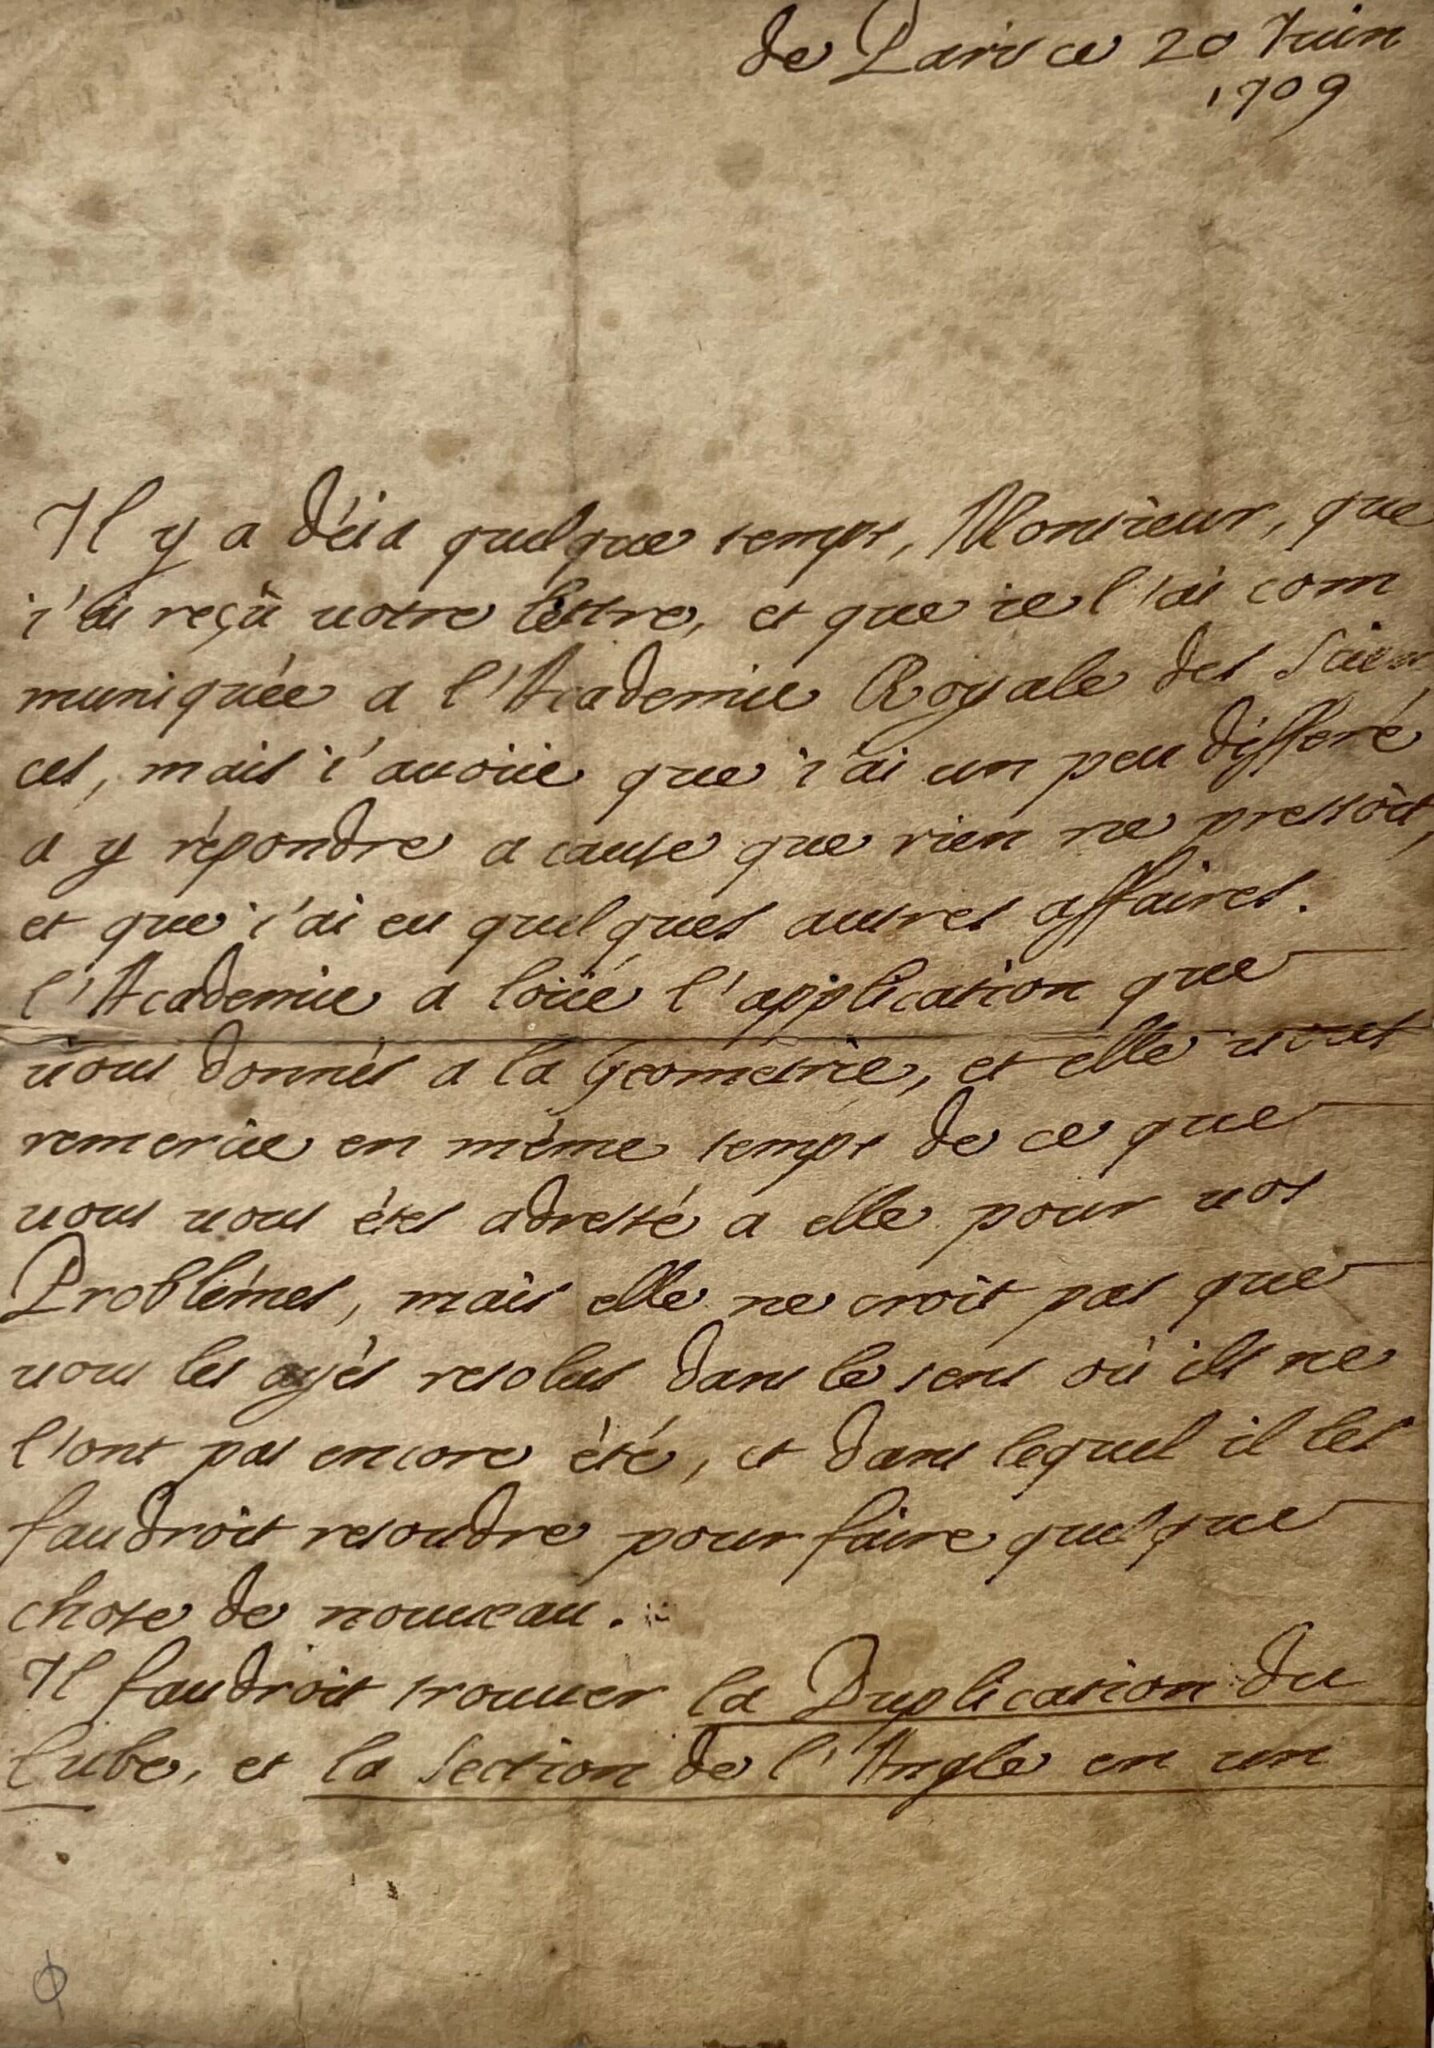 de Paris ce 20 Juin
1709
Il y a déia quelque temps, Monsieur, que
i'ai reçû votre lettre, et que ie l'ai com
muniquée a l'Academie Royale des Scien
ces, mais i'avoüe que i'ai un peu differé
a y répondre a cause que rien ne pressoit,
et que i'ai eu quelques autres affaires.
l'Academie a loüé l'application que
vous donnés a la Geometrie, et elle vous
remercie en même temps de ce que
vous vous étes adressé a elle pour vos
Problémes, mais elle ne croit pas que
vous les ayés resolus dans le sens où ils ne
l'ont pas encore été, et dans lequel il les
faudroit resoudre pour faire quelque
chose de nouveau.
Il faudroit trouver la Duplication du
Cube, et la Section de l'Angle en un